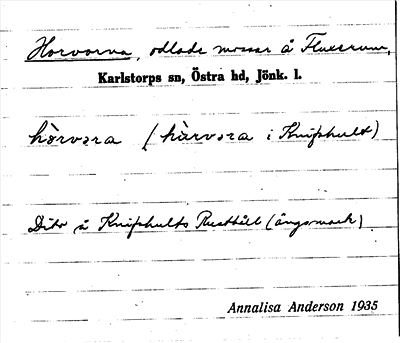 Horvorna, odlade mossar å Fluxerum,
Karlstorps sn, Östra hd, Jönk. l.
hòrvɜra (hàrvɜra i Kniphult)
Dito å Kniphults Rusthåll (ängsmark)
Annalisa Anderson 1935